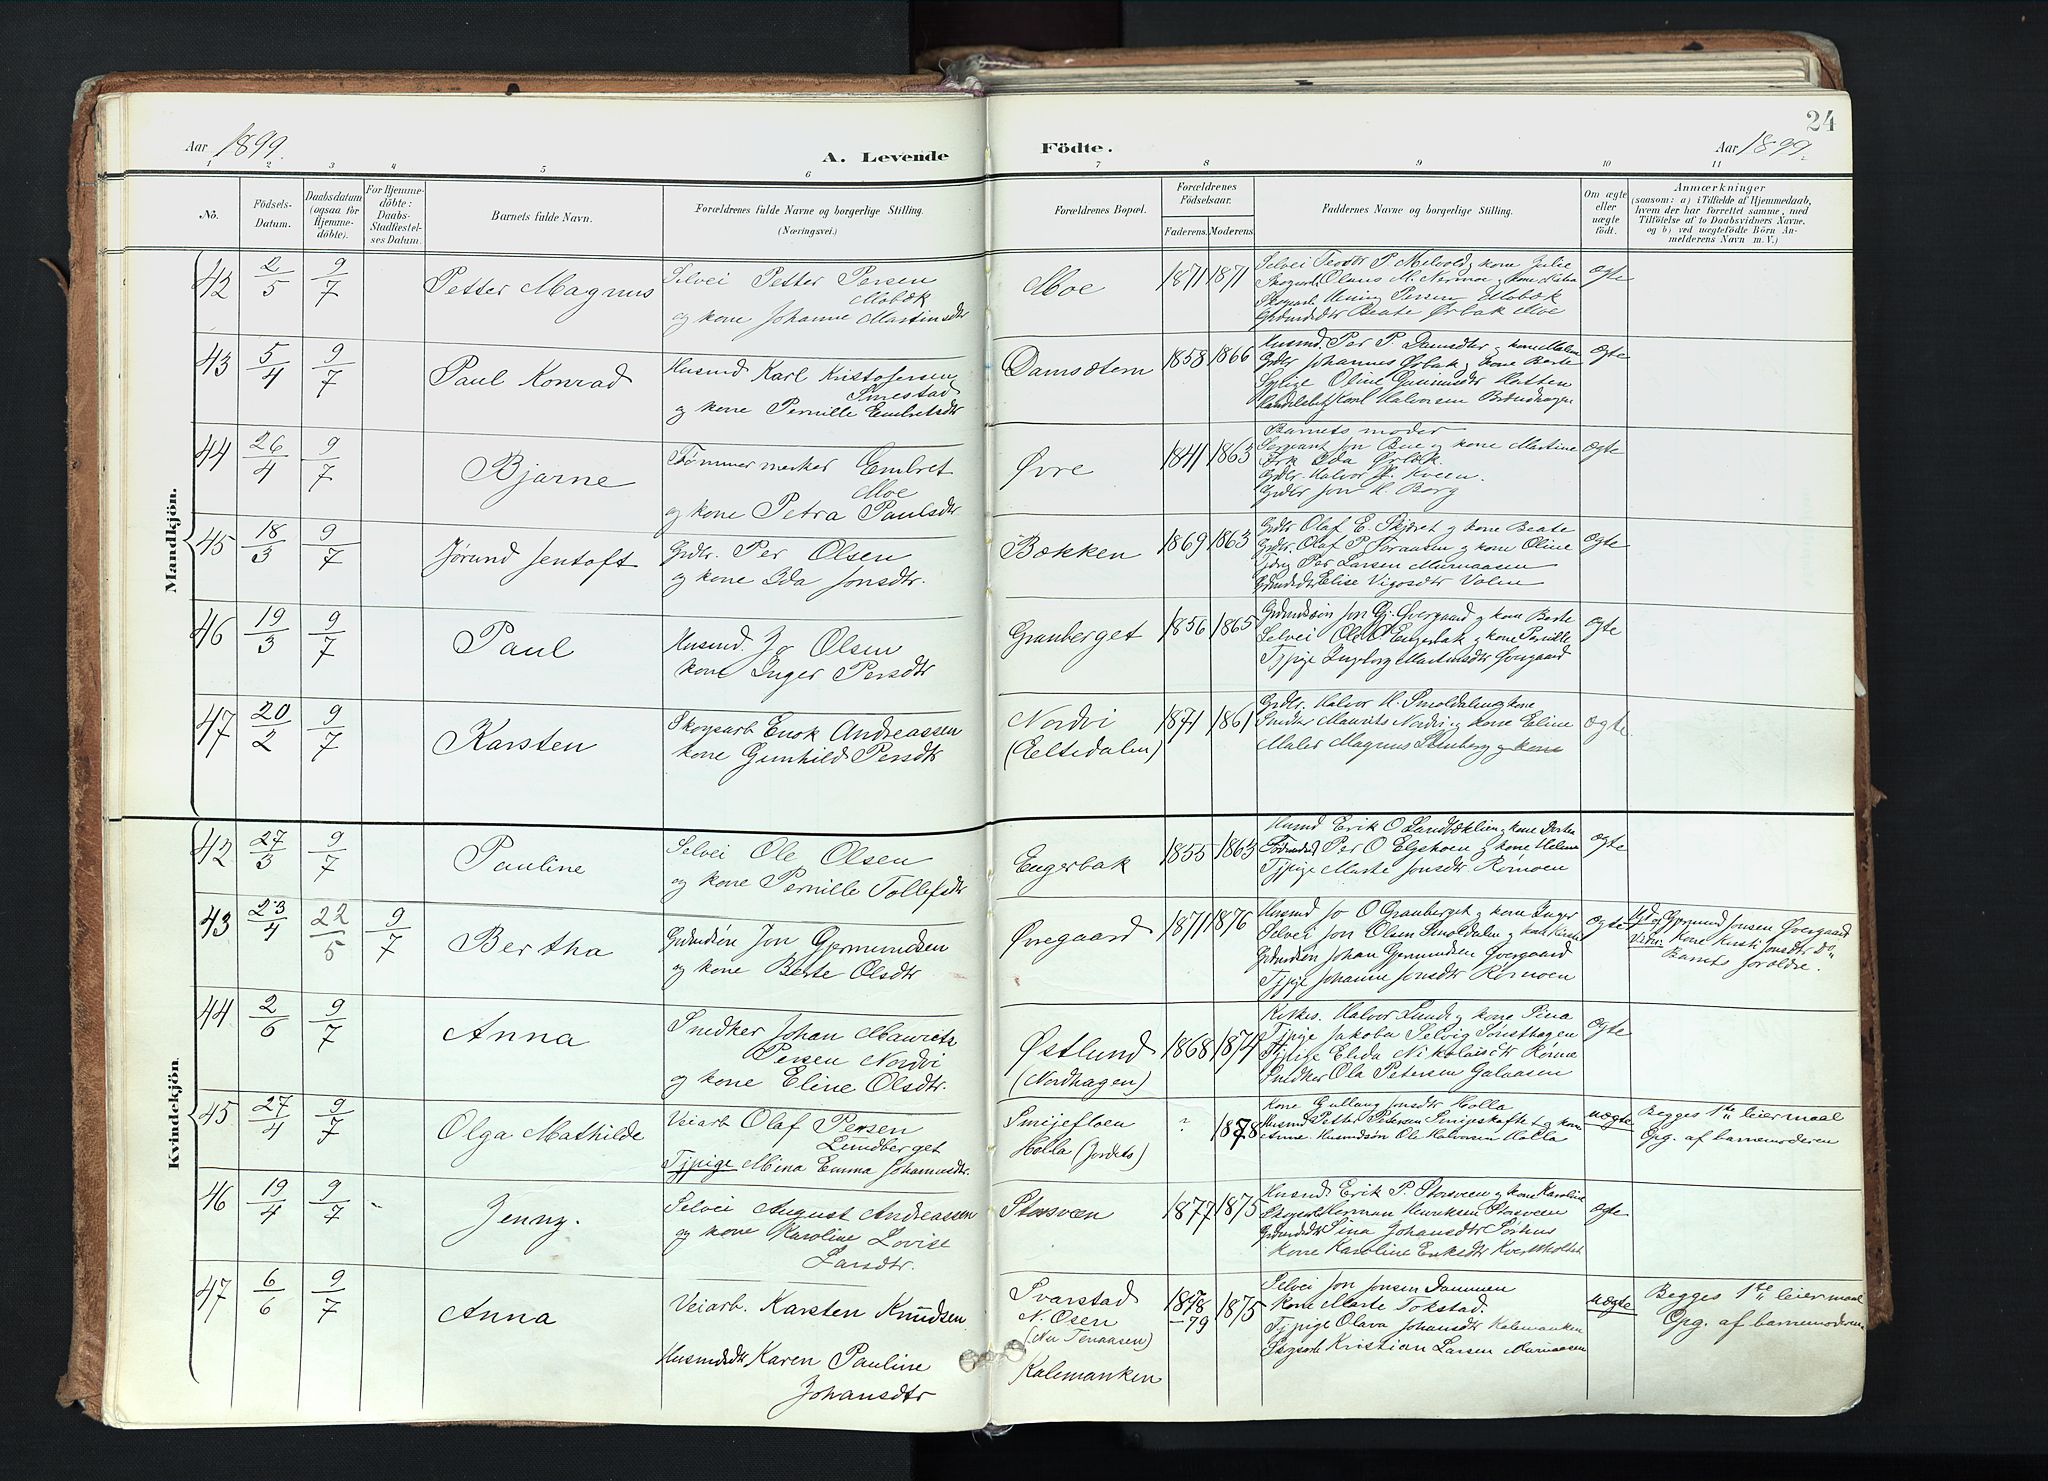 24
Aar 1899.
A. Levende
Födte.
Aar 1899.
1 2 3 4 5 6 7 8 9 10 11
No.
Födsels-Datum.
Daabsdatum (ogsaa for Hjemme-döbte).
For Hjemme-döbte: Daabs-Stadfæstel-ses Datum.
Barnets fulde Navn.
Forældrenes fulde Navne og borgerlige Stilling.
(Næringsvei.)
Forældrenes Bopæl.
Forældrenes Födselsaar.
Faderens. Moderens.
Faddernes Navne og borgerlige Stilling.
Om ægte eller uægte födt.
Anmærkninger
(saasom: a) i Tilfælde af Hjemmedaab, hvem der har forrettet samme, med Tilföielse af to Daabsvidners Navne, og b) ved uægtefödte Börn Anmelderens Navn m. V.)
Mandkjön.
42 2/5 9/7 Petter Magnus
Selvei Petter Persen
Mobæk
og kone Johanne Martinsdtr
Moe 1871 1871
Beate Ørbak Moe
ægte
43 5/4 9/7 Paul Konrad
Husmd Karl Kristofersen
og kone Pernille Embretsdtr
Damsætern 1858 1866
Husmd. Per P. Damsæter og kone Malene
Grdbr Johannes Ørbak og kone Berte
Karl Halvorsen
ægte
44 26/4 9/7 Bjarne
Tømmermerker Embret
Moe
og kone Petra Paulsdtr
Øvre 1841 1863
Barnets moder
Sergeant Jon Bue og kone Martine
Frk Ida Ørbæk.
Grdbr. Halvor Kveen.
Grdbr Jon H. Borg
ægte
45 18/3 9/7 Jørund Jentoft
Grdbr. Per Olsen
og kone Ida Jonsdtr.
Bækken 1869 1863
Grdbr Olaf E. Skjøret og kone Beate
Grdbr. Olaf P. Soraasen og kone Oline
Tjdrg Per Larsen Murnaasen
Grdmdsdtr Elise Vigosdtr Volen
ægte
46 19/3 9/7 Paul
Husmd. Jo Olsen
kone Inger Persdtr
Granberget 1856 1865
Grdmdssøn Jon Gj. Øvergaard og kone Berte
Selvei Ole O Engerbak og kone Pernille
Tjpige Ingeborg Martinsdtr Øvergaard
ægte
47 20/2 9/7 Karsten
Skogsarb Enok Andreassen
kone Gunhild Persdtr
Nordvi
(Eltsdalen)
1871 1861
Grdbr. Halvor H. Smoldalen og kone
Snedker Maurits Nordvi og kone Eline
Maler Magnus Stenberg og kone
ægte
Kvindekjön.
42 27/3 9/7 Pauline
Selvei Ole Olsen
og kone Pernille Tollefsdtr
Engerbak 1855 1863
Husmd Erik O Sandbæklien og kone Dorte
Per O Elgshoen og kone Helene
Tjpige Marte Jonsdtr Rømoen
ægte
43 23/4 22/5 9/7 Bertha
Grdmdsøn Jon Gjermundsen
og kone Berte Olsdtr
Øvregaard 1871 1876
Husmd Jo O Granberget og kone Inger
Selvei Jon Olsen Smoldalen og kone Kirsti
Grdmdsøn Johan Gjermundsen Øvergaard
Tjpige Johanne Jonsdtr Rømoen
ægte
Gjermund Jonsen Øvergaard
Kone Kirsti Jonsdtr Do
Barnets foreldre.
44 2/6 9/7 Anna
Snedker Johan Maurits
Persen Nordvi
og kone Eline Olsdtr.
Østlund
(Nordhagen)
1868 1874
Kirkes. Halvor Lund og kone Sina
Tjpige Jakoba Selvig Sønsthagen
Tjpige Elida Nikolaisdtr Rømme
Snedker Ola Petersen Galaasen
ægte
45 27/4 9/7 Olga Mathilde
Veiarb Olaf Persen
Lundberget
Tjpige Mina Emma Johannesdtr.
Smijefloen
Holla (Jordets)
? 1878
Kone Gullaug Jonsdtr Holla
Husmd Petter Petersen Smijeskaftet og kone
Anne. Husmdsøn Ole Halvorsen Holla
uægte
Begges 1ste leiermaal
Opg. af barnemoderen
46 19/4 9/7 Jenny.
Selvei August Andreassen
og kone Karoline Lovise
Larsdtr.
Storsveen 1877 1875
Husmd Erik P. Storsveen og kone Karoline
Skogarb Herman Henriksen Storsveen
Grdmdsdtr Sina Johansdtr Sørhus
Kone Karoline Eriksdtr Kvernholtet
ægte
47 6/6 9/7 Anna
Veiarb. Karsten Knudsen.
Husmdsdtr Karen Pauline
Johansdtr
Svarstad
N. Osen
(Nu Tenaasen)
Kalemanken
1878-79 1875
Selvei Jon Jonsen Dammen
Kone Marte Tokstad.
Tjpige Olava Johansdtr Kalemanken
Skogsarb Kristian Larsen Murnaasen
uægte
Begges 1ste leiermaal
Opg. af barnemoderen